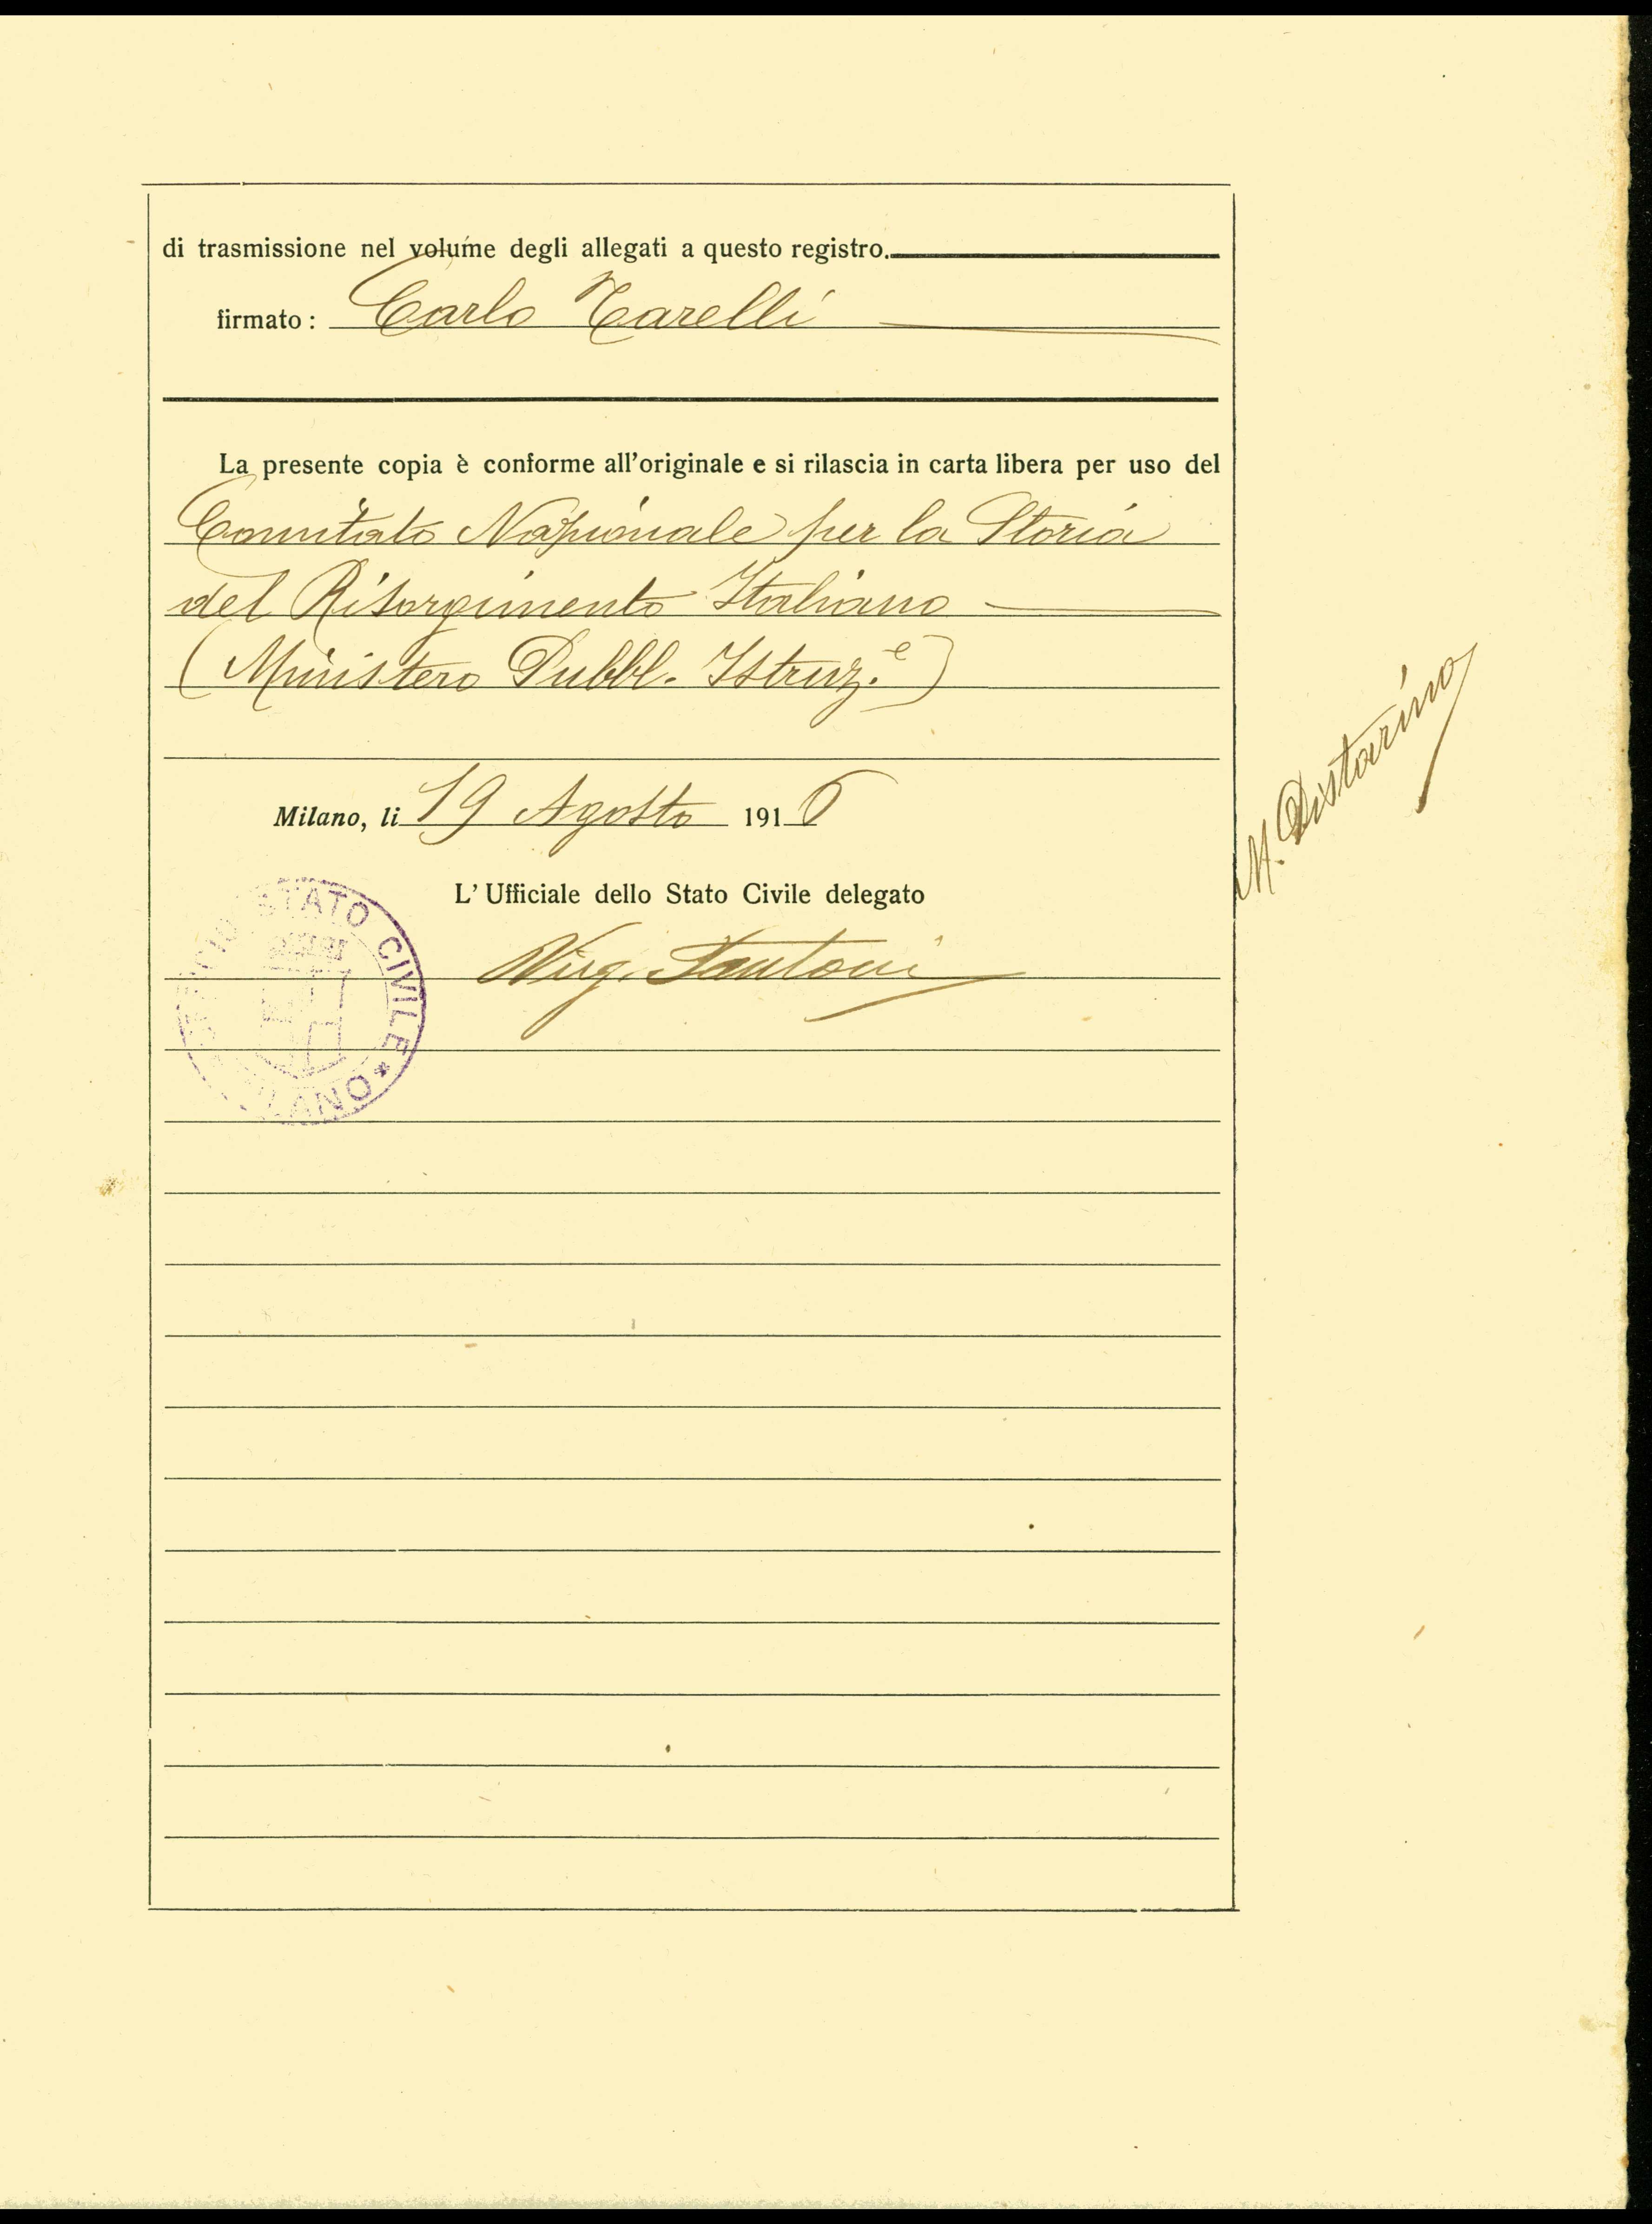 di trasmissione nel volume degli allegati a questo registro.
firmato: Carlo Tarelli
La presente copia è conforme all'originale e si rilascia in carta libera per uso del
Comitato Nazionale per la Storia
del Risorgimento Italiano
(Ministero Pubbl. Istruz.e)
Milano, li 19 Agosto 1916
L'Ufficiale dello Stato Civile delegato
Virg. Santoni
STATO CIVILE * 
M. Pistorino